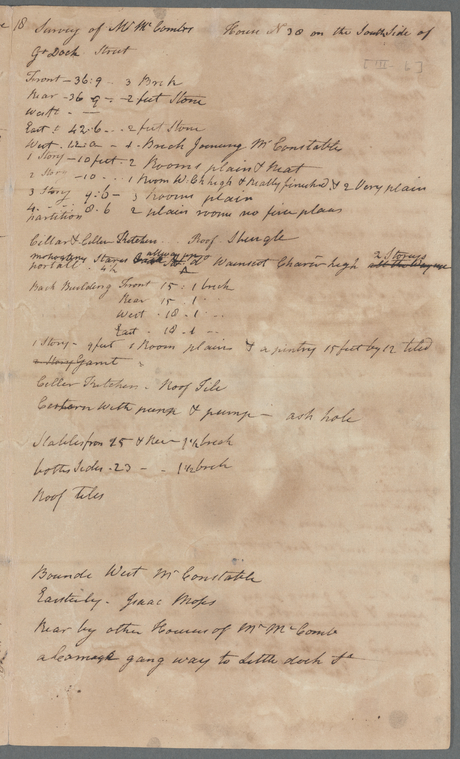 18 Survey of Mr Mc Combs House N 38 on the South Side of
Gt Dock Street
[III - 6]
Front - 36:9 - 3 Brck
Rear - 36 9 - 2 feet Stone
West -
East : 42:6 - 2 feet Stone
West - 1 Brick Joining Mr Constable
1 Story - 10 feet - 2 Rooms plain & Neat
2 Story - 10 - 1 Room W. Ch high & Neatly finished & 2 Very plain
3 Story 9:6 - 3 Rooms plain
4 8.6 2 plain rooms no fire plaus
partition
Cellar & Celler Kitchen. Roof Shingle
Stares Wainscot Chair high 2 Storys
Back Building Front 15 : 1 brick
Rear 15 : 1
West - 18 - 1
East - 18 - 1
1 Story - 9 feet 1 Room plain & a pentry 15 feet by 12 tiled
Garret
Celler Kitchen - Roof Tile
Cestern With & pump - ash hole
Stables fron 25 & Rer - 1 1/2 breck
both Sides - 23 - 1 1/2 breck
Roof tiles
Bounde West Mr Constable
Easterly - Isaac Moses
Rear by other Houses of Mr Mc Comb
a gang way to Little dock St